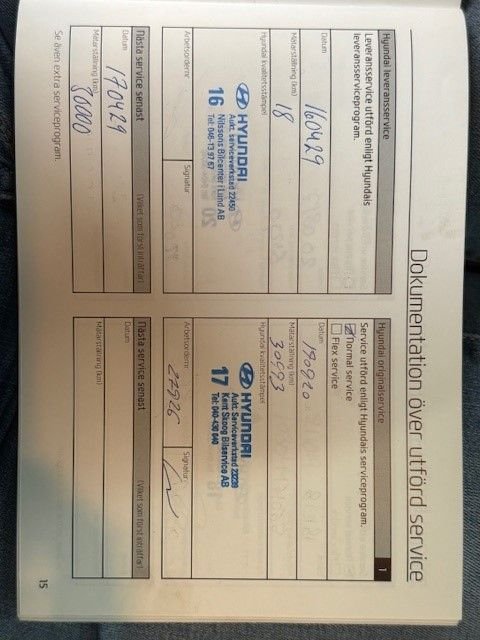 Dokumentation över utförd service
Hyundai leveransservice
Leveransservice utförd enligt Hyundais
leveransserviceprogram.
Datum
160429
Mätarställning (km)
18
Hyundai kvalitetsstämpel
HYUNDAI
Aukt. serviceverkstad 22450
Nilssons Bilcenter i Lund AB
16
Tel: 046-13 97 67
Arbetsordernr
Signatur
Nästa service senast
(Vilket som först inträffar)
Datum
170429
Mätarställning (km)
30000
Se även extra serviceprogram.
Hyundai originalservice
1
Service utförd enligt Hyundais serviceprogram.
Normal service
Flex service
Datum
Mätarställning (km)
30993
Hyundai kvalitetsstämpel
HYUNDAI
Aukt. Serviceverkstad 23239
Kent Skoog Bilservice AB
17
Tel: 040-430 640
Arbetsordernr
27926
Signatur
Nästa service senast
(Vilket som först inträffar)
Datum
Mätarställning (km)
15